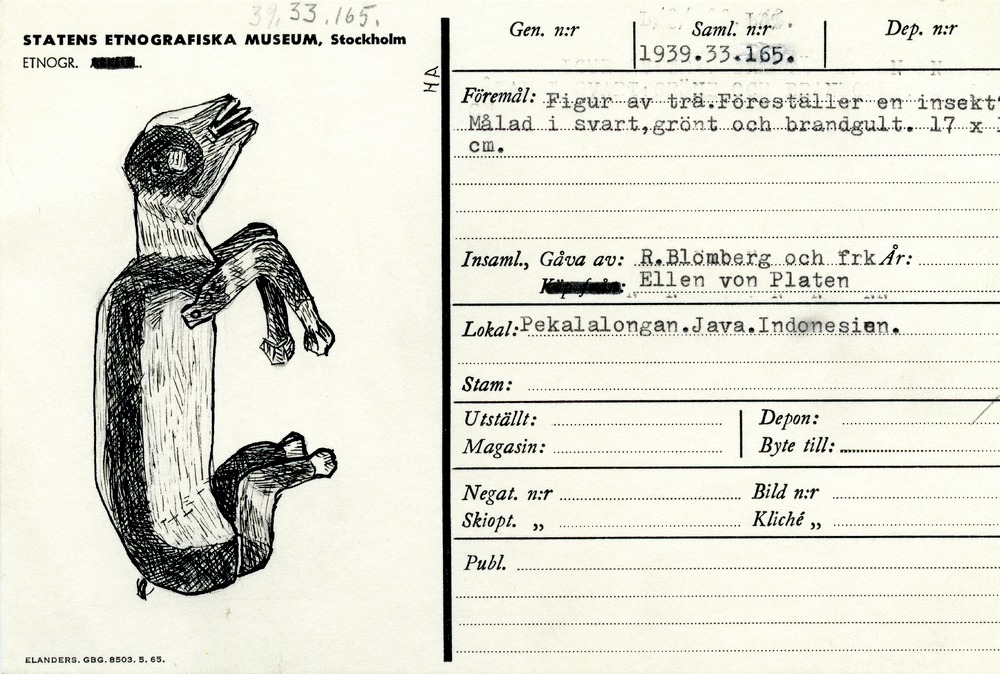 39.33.165.
STATENS ETNOGRAFISKA MUSEUM, Stockholm
ETNOGR.
HA
Gen. n:r Saml. n:r Dep. n:r
1939.33.165.
Föremål: Figur av trä. Föreställer en insekt?
Målad i svart, grönt och brandgult. 17 x
cm.
Insaml., Gåva av: R.Blomberg och frk År:
Köp från: Ellen von Platen
Lokal: Pekalalongan.Java.Indonesien.
Stam:
Utställt: Depon:
Magasin: Byte till:
Negat. n:r Bild n:r
Skiopt. „ Kliché „
Publ.
ELANDERS. GBG. 8503. 5. 65.